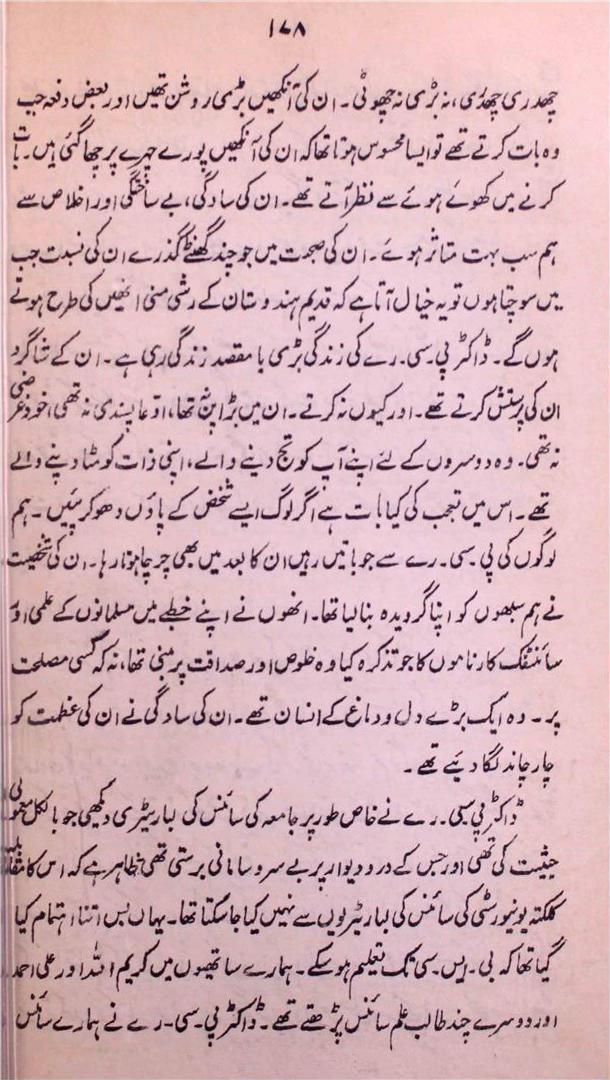 ۱۷۸
چھدری چھدری، نہ بڑی نہ چھوٹی۔ ان کی آنکھیں بڑی روشن تھیں اور بعض دفعہ جب
وہ بات کرتے تھے تو ایسا محسوس ہوتا تھا کہ ان کی آنکھیں پورے چہرے پر چھا گئی ہیں۔ بات
کرنے میں کھوئے ہوئے سے نظر آتے تھے۔ ان کی سادگی، بے ساختگی اور اخلاص سے
ہم سب بہت متاثر ہوئے۔ ان کی صحبت میں جو چند گھنٹے گذرے ان کی نسبت جب
میں سوچتا ہوں تو یہ خیال آتا ہے کہ قدیم ہندوستان کے رشی منی انھیں کی طرح ہوتے
ہوں گے۔ ڈاکٹر پی۔ سی۔ رے کی زندگی بڑی با مقصد زندگی رہی ہے۔ ان کے شاگرد
ان کی پرستش کرتے تھے۔ اور کیوں نہ کرتے۔ ان میں بڑا پن تھا، ادّعا پسندی نہ تھی، خود غرضی
نہ تھی۔ وہ دوسروں کے لئے اپنے آپ کو تج دینے والے، اپنی ذات کو مٹا دینے والے
تھے۔ اس میں تعجب کی کیا بات ہے اگر لوگ ایسے شخص کے پاؤں دھو کر پئیں۔ ہم
لوگوں کی پی۔ سی۔ رے سے جو باتیں رہیں ان کا بعد میں بھی چرچا ہوتا رہا۔ ان کی شخصیت
نے ہم سبھوں کو اپنا گرویدہ بنا لیا تھا۔ انھوں نے اپنے خطبے میں مسلمانوں کے علمی اور
سائنٹفک کارناموں کا جو تذکرہ کیا وہ خلوص اور صداقت پر مبنی تھا، نہ کہ کسی مصلحت
پر۔ وہ ایک بڑے دل و دماغ کے انسان تھے۔ ان کی سادگی نے ان کی عظمت کو
چار چاند لگا دیئے تھے۔
ڈاکٹر پی سی۔ رے نے خاص طور پر جامعہ کی سائنس کی لباریٹری دیکھی جو بالکل معمولی
حیثیت کی تھی اور جس کے در و دیوار پر بے سر و سامانی برستی تھی ظاہر ہے کہ اس کا مقابلہ
کلکتہ یونیورسٹی کی سائنس کی لباریٹریوں سے نہیں کیا جا سکتا تھا۔ یہاں بس اتنا اہتمام کیا
گیا تھا کہ بی۔ ایس۔ سی تک تعلیم ہو سکے۔ ہمارے ساتھیوں میں کریم اللہ اور علی احمد
اور دوسرے چند طالب علم سائنس پڑھتے تھے۔ ڈاکٹر پی۔ سی۔ رے نے ہمارے سائنس